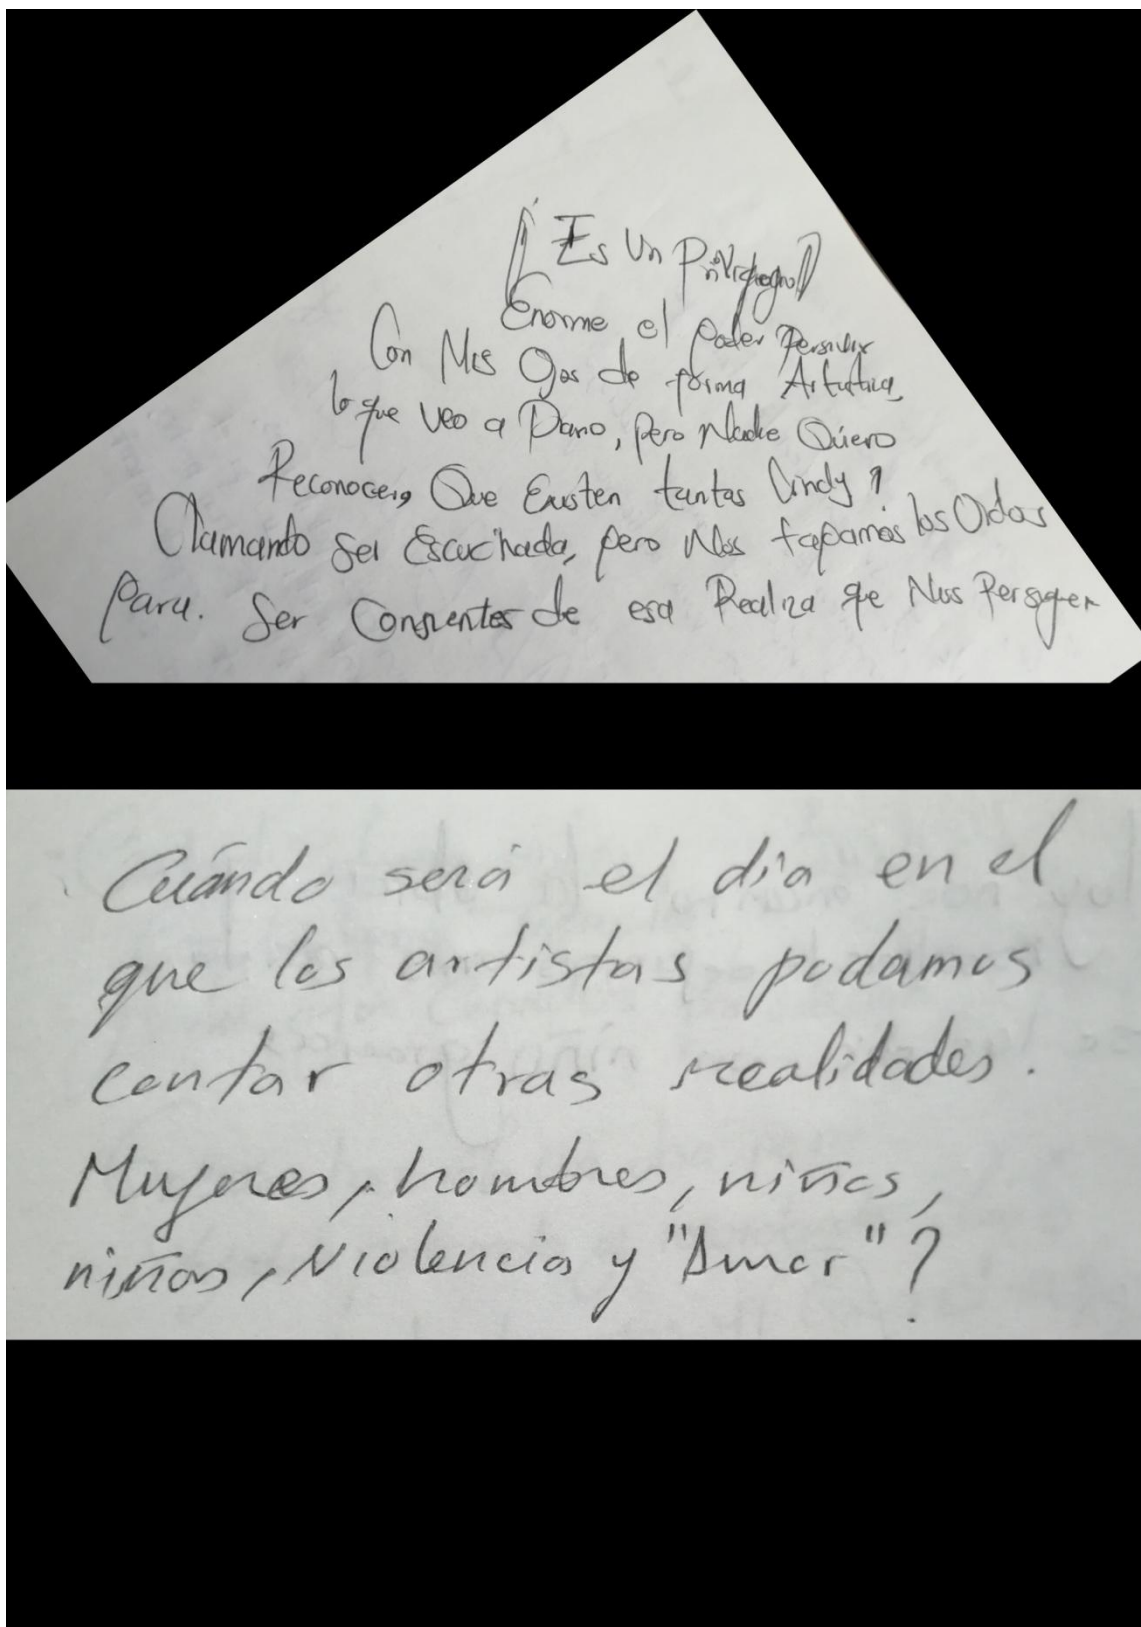 ¡Es Un
Enorme el poder Persivir
Con Mis Ojos de forma Artistica,
lo que veo a Diario, pero Nadie Quiero
Reconocer, Que Existen tantas Cindy ?
Clamando Ser Escuchada, pero Nos tapamos los Oidos
Para. Ser Consientes de esa Realiza que Nos Persiguen
Cuándo será el día en el
que los artistas podamos
contar otras realidades.
Mujeres, hombres, niños,
niñas, Violencia y "Amor"?